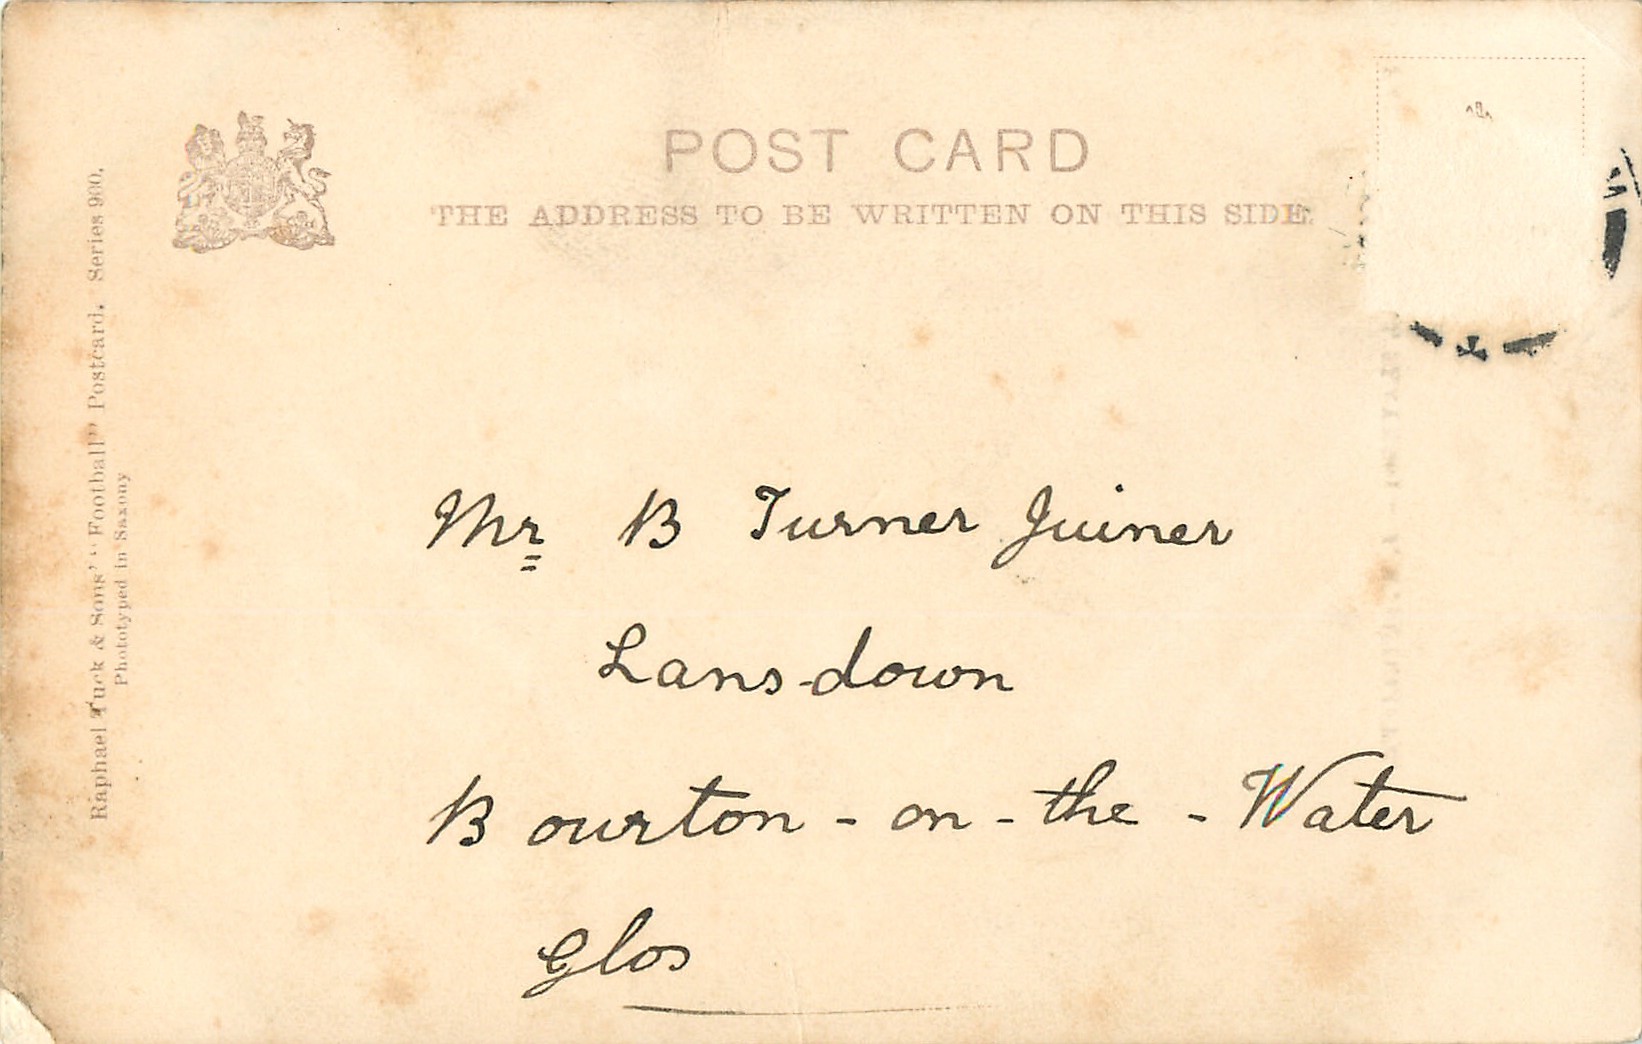 POST CARD
THE ADDRESS TO BE WRITTEN ON THIS SIDE
Raphael Tuck & Sons' "Football" Postcard. Series 900.
Phototyped in Saxony
Mr B Turner Juiner
Lans-down
Bourton-on-the-Water
Glos